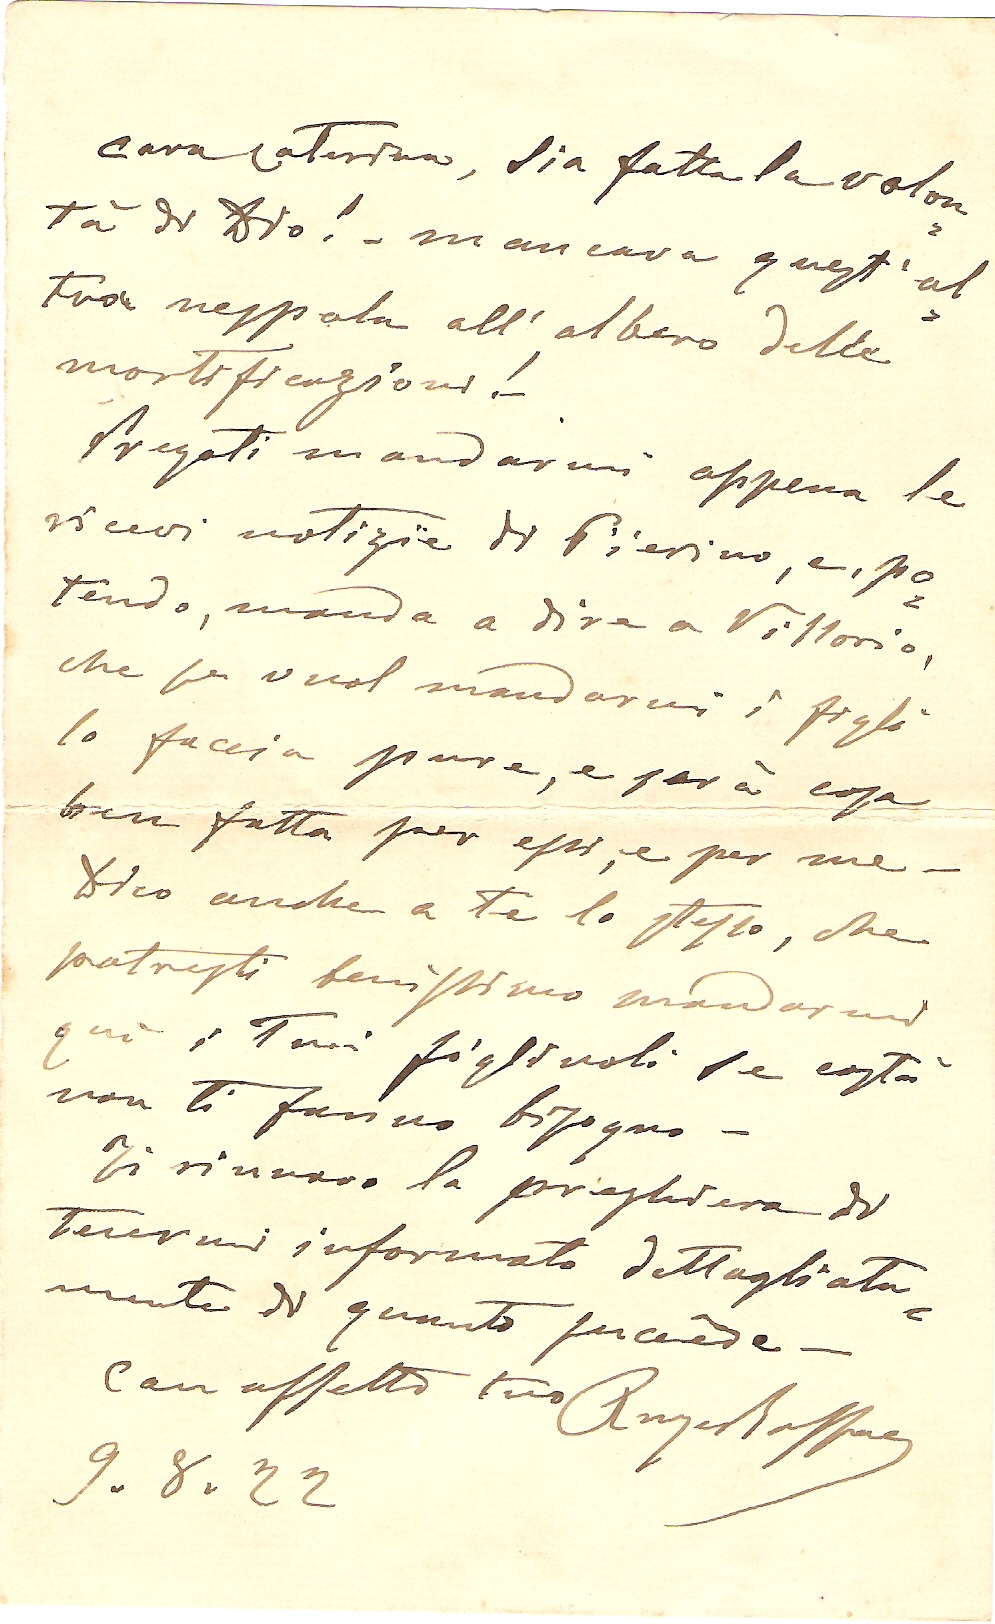 cara Caterina, sia fatta la volon=
tà di Dio! - mancava quest'al=
tra nespola all'albero delle
mortificazioni! -
Pregoti mandarmi appena le
ricevi notizie di Pierino, e, po=
tendo, manda a dire a Vittorio,
che se vuol mandarmi i figli
lo faccia pure, e sarà cosa
ben fatta per essi, e per me -
Dico anche a te lo stesso, che
potresti benissimo mandarmi
quì i tuoi figliuoli se costà
non ti fanno bisogno -
Ti rinnovo la preghiera di
tenermi informato dettagliata=
mente di quanto succede -
Con affetto tuo
9. 8. 22